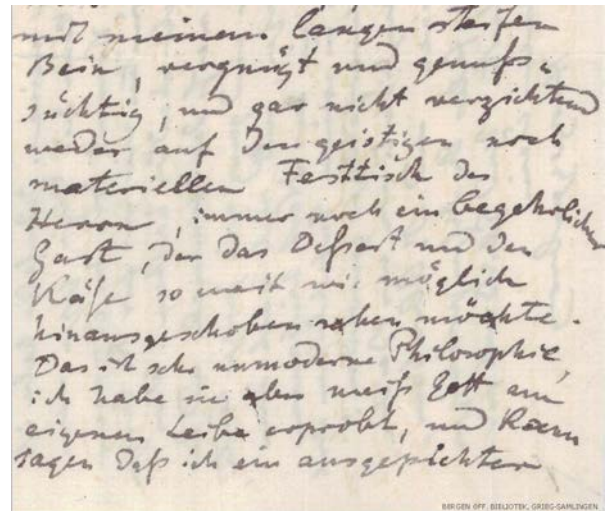 mit meinem langen steifen
Bein, vergnügt und genuß-
süchtig, und gar nicht verzichtend
weder auf den geistigen noch
materiellen Festtisch des
Herrn, immer noch ein begehrlicher
Gast, der das Deßert und den
Käse so weit wie möglich
hinausgeschoben sehen möchte.
Das ist sehr unmoderne Philosophie,
ich habe sie aber weiß Gott am
eigenen Leibe erprobt, und kann
sagen daß ich ein ausgepichter
BERGEN OFF. BIBLIOTEK, GRIEG-SAMLINGEN